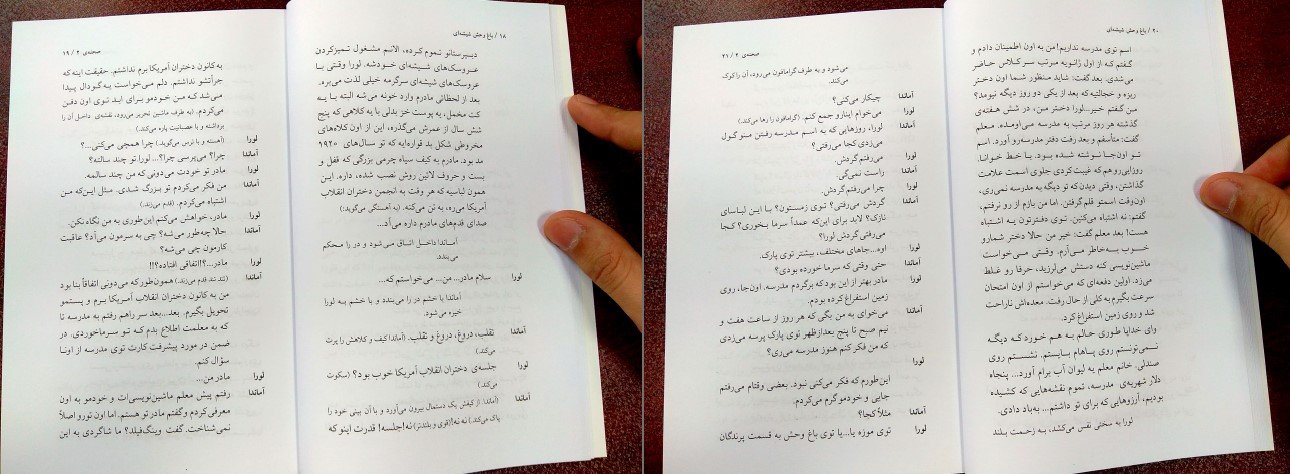 ۱۸ / باغ وحش شیشه‌ای
دبیرستانو تموم کرده، الانم مشغول تمیزکردن
عروسک‌های شیشه‌ای خودشه. لورا وقتی با
عروسک‌های شیشه‌ای سرگرمه خیلی لذت می‌بره.
بعد از لحظاتی مادرم وارد خونه می‌شه البته با یه
کت مخمل، یه پوست خز بدلی با یه کلاهی که پنج
شش سال از عمرش می‌گذره، این از اون کلاه‌های
مخروطی شکل بد قواره‌ایه که تو سال‌های ۱۹۲۰
مد بود. مادرم یه کیف سیاه چرمی بزرگی که قفل و
بست و حروف لاتین روش نصب شده، داره. این
همون لباسیه که هر وقت به انجمن دختران انقلاب
آمریکا می‌ره، به تن می‌کنه. (به آهستگی می‌گوید:)
صدای قدم‌های مادرم داره می‌آد...
آماندا داخل اتاق می‌شود و در را محکم
می‌بندد.
لورا سلام مادر... من... می‌خواستم که...
آماندا با خشم در را می‌بندد و با خشم به لورا
خیره می‌شود.
آماندا تقلب، دروغ، دروغ و تقلب. (آماندا کیف و کلاهش را پرت
می‌کند.)
لورا جلسه‌ی دختران انقلاب آمریکا خوب بود؟ (سکوت
می‌کند.)
آماندا (آماندا از کیفش یک دستمال بیرون می‌آورد و با آن بینی خود را
پاک می‌کند.) نه نه! (قوی و بلندتر) نه! جلسه! قدرت اینو که
صحنه‌ی ۲ / ۱۹
به کانون دختران آمریکا برم نداشتم. حقیقت اینه که
جرأتشو نداشتم. دلم می‌خواست یه گودال پیدا
می‌شد که من خودمو برای ابد توی اون دفن
می‌کردم. (به طرف ماشین تحریر می‌رود، نقشه‌ی داخل آن را
برداشته و با عصبانیت پاره می‌کند.)
لورا (آهسته و با ترس می‌گوید:) چرا همچی می‌کنی...؟
آماندا چرا؟ می‌پرسی چرا؟... لورا تو چند سالته؟
لورا مادر تو خودت می‌دونی که من چند سالمه.
آماندا من فکر می‌کردم تو بزرگ شدی. مثل این‌که من
اشتباه می‌کردم. (قدم می‌زند.)
لورا مادر، خواهش می‌کنم این‌طوری به من نگاه نکن.
آماندا حالا چه‌طور می‌شه؟ چی به سرمون می‌آد؟ عاقبت
کارمون چی می‌شه؟
لورا مادر...؟!! اتفاقی افتاده؟!!
آماندا (تند تند قدم می‌زند.) همون‌طور که می‌دونی اتفاقاً بنا بود
من به کانون دختران انقلاب آمریکا برم و پستمو
تحویل بگیرم. بعد... بعد سر راهم رفتم به مدرسه تا
که به معلمت اطلاع بدم که تو سرماخوردی. در
ضمن در مورد پیشرفت کارت توی مدرسه از اونا
سؤال کنم.
لورا مادر من...
آماندا رفتم پیش معلم ماشین‌نویسی‌ات و خودمو به اون
معرفی کردم و گفتم مادر تو هستم. اما اون تورو اصلاً
نمی‌شناخت. گفت وینگ‌فیلد؟ ما شاگردی به این
۲۰ / باغ وحش شیشه‌ای
اسم توی مدرسه نداریم! من به اون اطمینان دادم و
گفتم که از اول ژانویه مرتب سر کلاس حاضر
می‌شدی. بعد گفت: شاید منظور شما اون دختر
ریزه و خجالتیه که بعد از یکی دو روز دیگه نیومد؟
من گفتم خیر... لورا دختر من، در شش هفته‌ی
گذشته هر روز مرتب به مدرسه می‌اومده. معلم
گفت: متأسفم و بعد رفت دفتر مدرسه‌رو آورد. اسم
تو اون‌جا نوشته شده بود. با خط خوانا.
روزایی‌رو هم که غیبت کردی جلوی اسمت علامت
گذاشتن، وقتی دیدن که تو دیگه به مدرسه نمی‌ری،
اون‌وقت اسمتو قلم گرفتن. اما من بازم از رو نرفتم.
گفتم: نه اشتباه می‌کنین. توی دفترتون یه اشتباه
هست! بعد معلم گفت: خیر من حالا دختر شمارو
خوب به‌خاطر می‌آرم. وقتی می‌خواست
ماشین‌نویسی کنه دستش می‌لرزید، حرفا رو غلط
می‌زد. اولین دفعه‌ای که می‌خواستم از اون امتحان
سرعت بگیرم به کلی از حال رفت. معده‌اش ناراحت
شد و روی زمین استفراغ کرد.
وای خدایا طوری حالم به هم خورد که دیگه
نمی‌تونستم روی پاهام بایستم. نشستم روی
صندلی. خانم معلم یه لیوان آب برام آورد... پنجاه
دلار شهریه‌ی مدرسه، تموم نقشه‌هایی که کشیده
بودیم، آرزوهایی که برای تو داشتم... به‌باد دادی.
لورا به سختی نفس می‌کشد، به زحمت بلند
صحنه‌ی ۲ / ۲۱
می‌شود و به طرف گرامافون می‌رود، آن را کوک
می‌کند.
آماندا چیکار می‌کنی؟
لورا می‌خوام اینارو جمع کنم. (گرامافون را رها می‌کند.)
آماندا لورا، روزهایی که به اسم مدرسه رفتن منو گول
می‌زدی کجا می‌رفتی؟
لورا می‌رفتم گردش.
آماندا راست نمی‌گی.
لورا چرا می‌رفتم گردش.
آماندا گردش می‌رفتی؟ توی زمستون؟ با این لباسای
نازک؟ لابد برای این‌که عمداً سرما بخوری؟ کجا
می‌رفتی گردش لورا؟
لورا اوه... جاهای مختلف، بیشتر توی پارک.
آماندا حتی وقتی که سرما خورده بودی؟
لورا مادر بهتر از این بود که برگردم مدرسه. اون‌جا، روی
زمین استفراغ کرده بودم.
آماندا می‌خوای به من بگی که هر روز از ساعت هفت و
نیم صبح تا پنج بعدازظهر توی پارک پرسه می‌زدی
که من فکر کنم هنوز مدرسه می‌ری؟
لورا
این‌طورم که فکر می‌کنی نبود. بعضی وقتام می‌رفتم
جایی و خودمو گرم می‌کردم.
آماندا مثلاً کجا؟
لورا توی موزه یا... یا توی باغ وحش به قسمت پرندگان